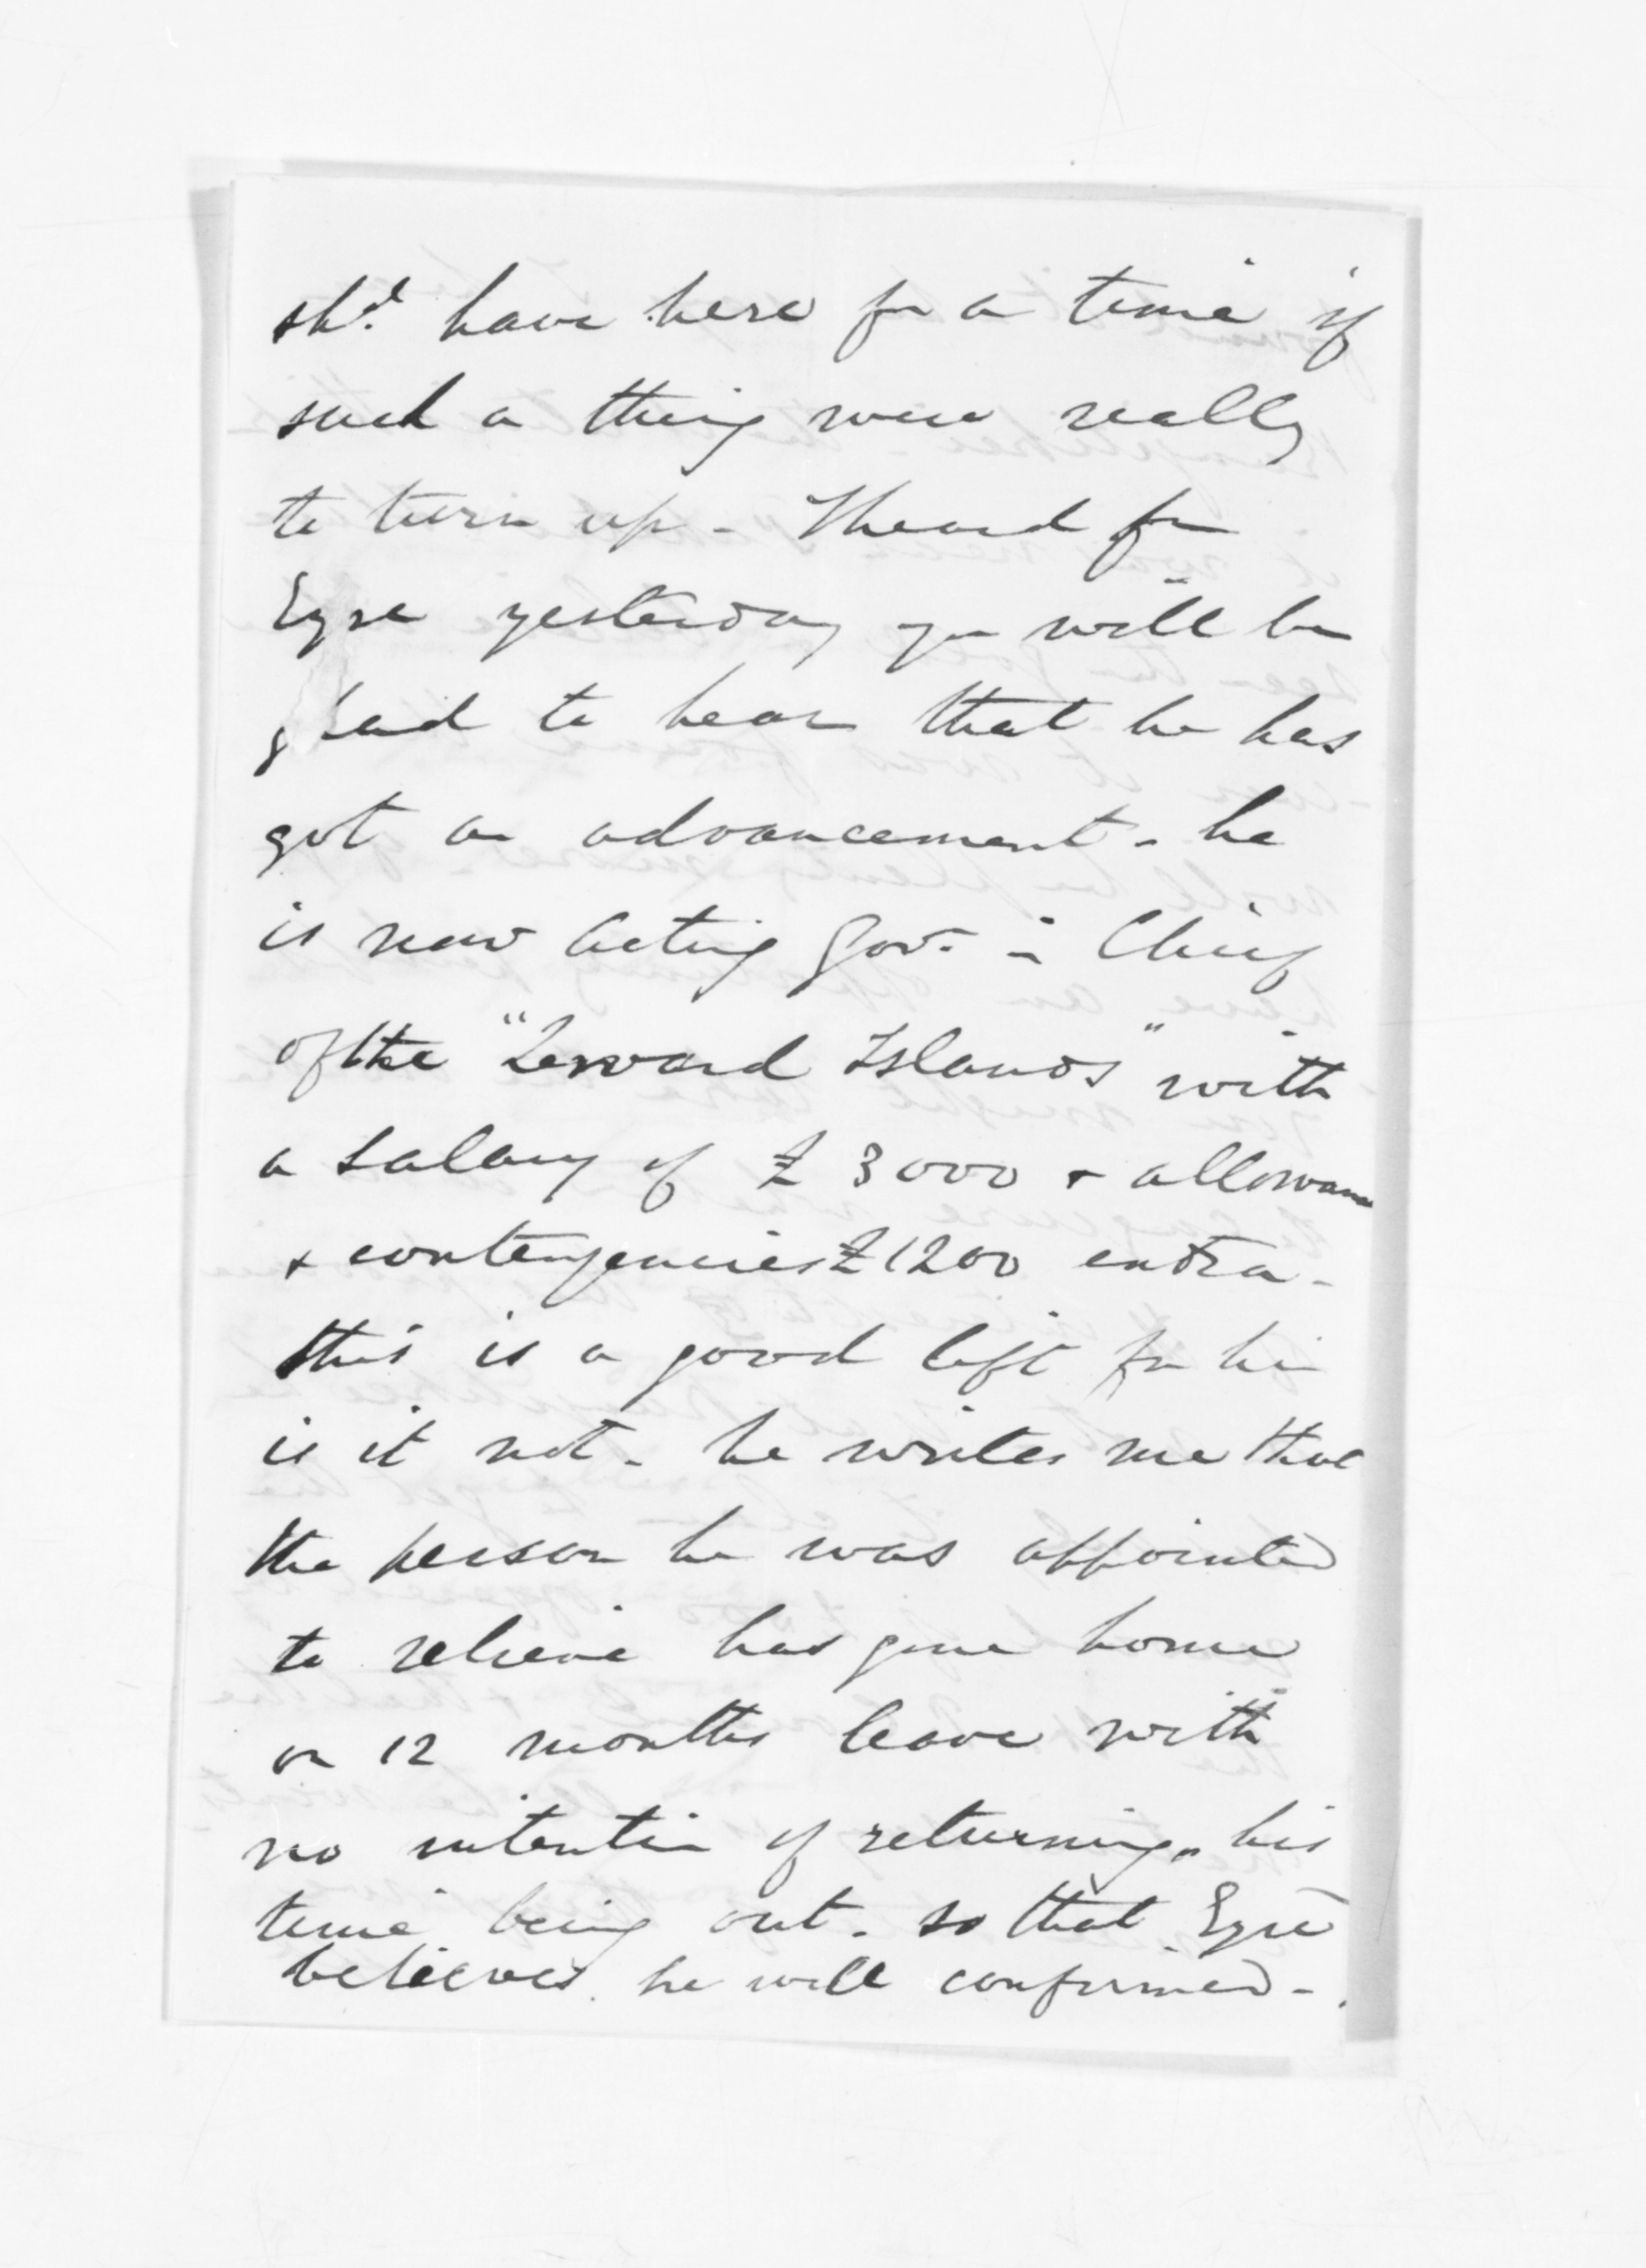 shd. have here for a time if
such a thing were really
to turn up - I heard fm
Eyre yesterday you will be
glad to hear that he has
got an advancement - he
is now Acting Govr. in Chief
of the "Leward Islands" with
a salary of £3000 & allowance
& contengencies £1200 extra -
this is a good lift for him
is it not - he writes me that
the person he was appointed
to relieve has gone home
on 12 months leave with
no intention of returning, his
time being out - so that Eyre
believes he will confirmed -.